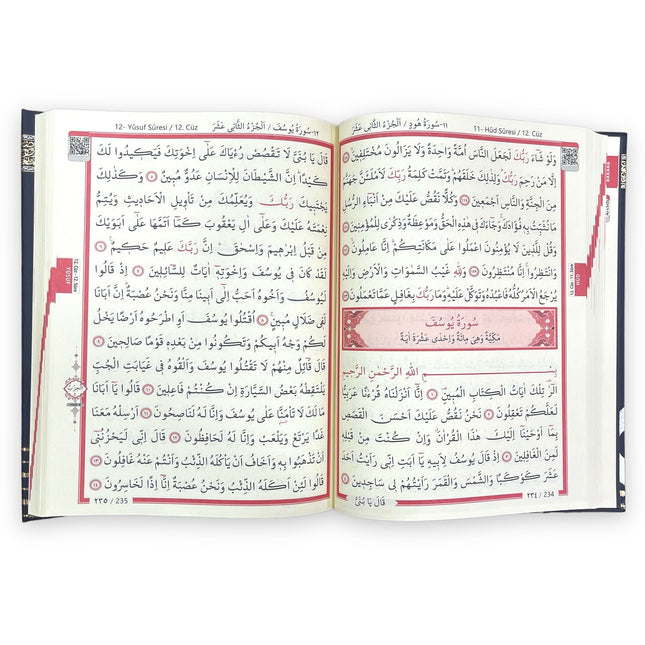 ١١-سُورَةُ هُودٍ / اَلْجُزْءُ الثَّانِى عَشَرَ 11- Hûd Sûresi / 12. Cüz
وَلَوْ شَٓاءَ رَبُّكَ لَجَعَلَ النَّاسَ اُمَّةً وَاحِدَةً وَلَا يَزَالُونَ مُخْتَلِفٖينَ ١١٨
اِلَّا مَنْ رَحِمَ رَبُّكَ وَلِذٰلِكَ خَلَقَهُمْ وَتَمَّتْ كَلِمَةُ رَبِّكَ لَاَمْلَـَٔنَّ جَهَنَّمَ
مِنَ الْجِنَّةِ وَالنَّاسِ اَجْمَعٖينَ ١١٩ وَكُلًّا نَقُصُّ عَلَيْكَ مِنْ اَنْبَٓاءِ الرُّسُلِ
مَا نُثَبِّتُ بِهٖ فُؤٰادَكَ وَجَٓاءَكَ فٖى هٰذِهِ الْحَقُّ وَمَوْعِظَةٌ وَذِكْرٰى لِلْمُؤْمِنٖينَ ١٢٠
وَقُلْ لِلَّذٖينَ لَا يُؤْمِنُونَ اعْمَلُوا عَلٰى مَكَانَتِكُمْ اِنَّا عَامِلُونَ ١٢١
وَانْتَظِرُوا اِنَّا مُنْتَظِرُونَ ١٢٢ وَلِلّٰهِ غَيْبُ السَّمٰوَاتِ وَالْاَرْضِ وَاِلَيْهِ
يُرْجَعُ الْاَمْرُ كُلُّهُ فَاعْبُدْهُ وَتَوَكَّلْ عَلَيْهِ وَمَا رَبُّكَ بِغَافِلٍ عَمَّا تَعْمَلُونَ ١٢٣
سُورَةُ يُوسُفَ
مَكِّيَّةٌ وَهِىَ مِائَةٌ وَاِحْدٰى عَشْرَةَ اٰيَةً
بِسْمِ اللّٰهِ الرَّحْمٰنِ الرَّحٖيمِ
الٓرٰ تِلْكَ اٰيَاتُ الْكِتَابِ الْمُبٖينِ ١ اِنَّٓا اَنْزَلْنَاهُ قُرْءٰنًا عَرَبِيًّا
لَعَلَّكُمْ تَعْقِلُونَ ٢ نَحْنُ نَقُصُّ عَلَيْكَ اَحْسَنَ الْقَصَصِ
بِمَٓا اَوْحَيْنَٓا اِلَيْكَ هٰذَا الْقُرْاٰنَ وَاِنْ كُنْتَ مِنْ قَبْلِهٖ
لَمِنَ الْغَافِلٖينَ ٣ اِذْ قَالَ يُوسُفُ لِاَبٖيهِ يَٓا اَبَتِ اِنّٖى رَاَيْتُ اَحَدَ
عَشَرَ كَوْكَبًا وَالشَّمْسَ وَالْقَمَرَ رَاَيْتُهُمْ لٖى سَاجِدٖينَ ٤
٢٣٤ / 234
قَالَ يَا بُنَىَّ
HÛD
12. Cüz - 11. Sûre
12- Yûsuf Sûresi / 12. Cüz ١٢-سُورَةُ يُوسُفَ / اَلْجُزْءُ الثَّانِى عَشَرَ
قَالَ يَا بُنَىَّ لَا تَقْصُصْ رُءْيَاكَ عَلٰٓى اِخْوَتِكَ فَيَكٖيدُوا لَكَ
كَيْدًا اِنَّ الشَّيْطَانَ لِلْاِنْسَانِ عَدُوٌّ مُبٖينٌ ٥ وَكَذٰلِكَ
يَجْتَبٖيكَ رَبُّكَ وَيُعَلِّمُكَ مِنْ تَاْوٖيلِ الْاَحَادٖيثِ وَيُتِمُّ
نِعْمَتَهُ عَلَيْكَ وَعَلٰٓى اٰلِ يَعْقُوبَ كَمَٓا اَتَمَّهَا عَلٰٓى اَبَوَيْكَ
مِنْ قَبْلُ اِبْرٰهٖيمَ وَاِسْحٰقَ اِنَّ رَبَّكَ عَلٖيمٌ حَكٖيمٌ ٦
لَقَدْ كَانَ فٖى يُوسُفَ وَاِخْوَتِهٖٓ اٰيَاتٌ لِلسَّٓائِلٖينَ ٧ اِذْ قَالُوا
لَيُوسُفُ وَاَخُوهُ اَحَبُّ اِلٰٓى اَبٖينَا مِنَّا وَنَحْنُ عُصْبَةٌ اِنَّ اَبَانَا
لَفٖى ضَلَالٍ مُبٖينٍ ٨ اُقْتُلُوا يُوسُفَ اَوِ اطْرَحُوهُ اَرْضًا يَخْلُ
لَكُمْ وَجْهُ اَبٖيكُمْ وَتَكُونُوا مِنْ بَعْدِهٖ قَوْمًا صَالِحٖينَ ٩
قَالَ قَٓائِلٌ مِنْهُمْ لَا تَقْتُلُوا يُوسُفَ وَاَلْقُوهُ فٖى غَيَابَتِ الْجُبِّ
يَلْتَقِطْهُ بَعْضُ السَّيَّارَةِ اِنْ كُنْتُمْ فَاعِلٖينَ ١٠ قَالُوا يَٓا اَبَانَا
مَا لَكَ لَا تَاْمَنَّا عَلٰى يُوسُفَ وَاِنَّا لَهُ لَنَاصِحُونَ ١١ اَرْسِلْهُ مَعَنَا
غَدًا يَرْتَعْ وَيَلْعَبْ وَاِنَّا لَهُ لَحَافِظُونَ ١٢ قَالَ اِنّٖى لَيَحْزُنُنٖٓى
اَنْ تَذْهَبُوا بِهٖ وَاَخَافُ اَنْ يَاْكُلَهُ الذِّئْبُ وَاَنْتُمْ عَنْهُ غَافِلُونَ ١٣
قَالُوا لَئِنْ اَكَلَهُ الذِّئْبُ وَنَحْنُ عُصْبَةٌ اِنَّٓا اِذًا لَخَاسِرُونَ ١٤
٢٣٥ / 235
YÛSUF
12. Cüz - 12. Sûre